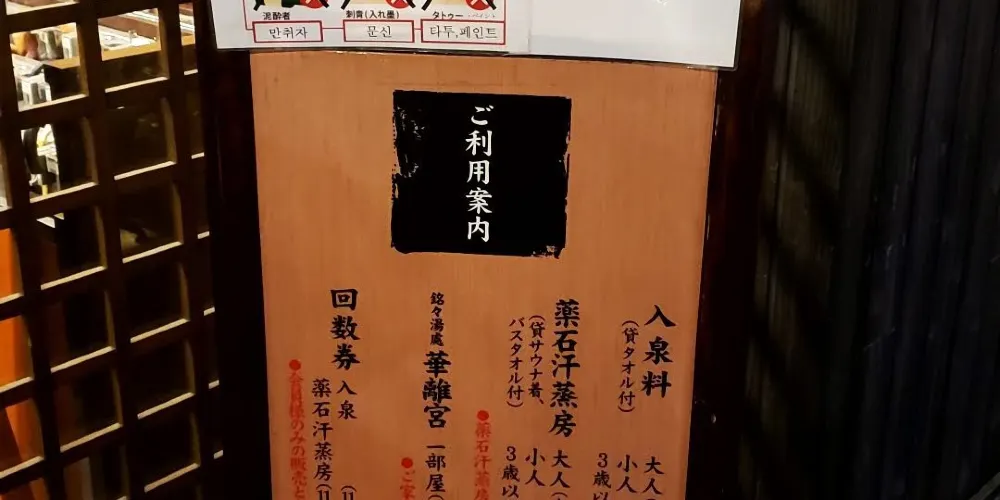 泥酔者
刺青(入れ墨)
タトゥー・ペイント
만취자
문신
다투,페인트
ご利用案内
入泉料
(貸タオル付)
大人
小人
3歳以
薬石汗蒸房
(貸サウナ着、
バスタオル付)
大人
小人
3歳以
●薬石汗蒸房
銘々湯處
華離宮
一部屋
●ご家
回数券
入泉
薬石汗蒸房
●会員様のみの販売と